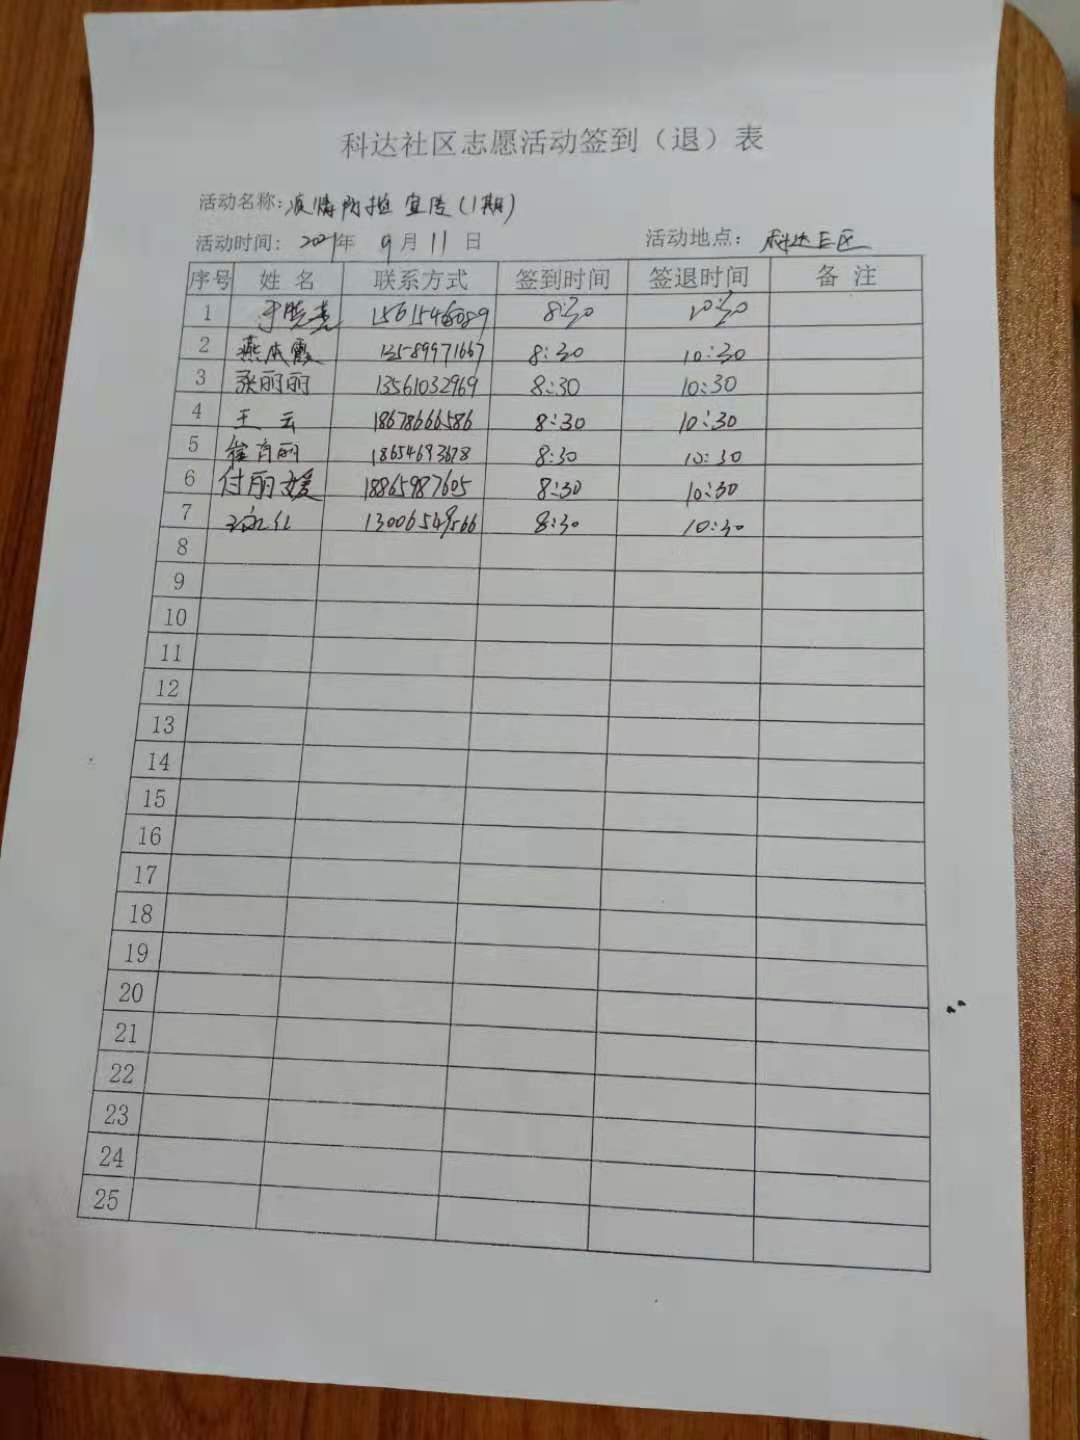 科达社区志愿活动签到（退）表
活动名称：疫情防控宣传（1期）
活动时间：2021年 9月 11日 活动地点：科达社区
序号 姓名 联系方式 签到时间 签退时间 备注
1 8:30 10:30
2 13589971667 8:30 10:30
3 张丽丽 13561032969 8:30 10:30
4 王云 18678666586 8:30 10:30
5 18654693678 8:30 10:30
6 付丽媛 18865987605 8:30 10:30
7 13006549566 8:30 10:30
8
9
10
11
12
13
14
15
16
17
18
19
20
21
22
23
24
25